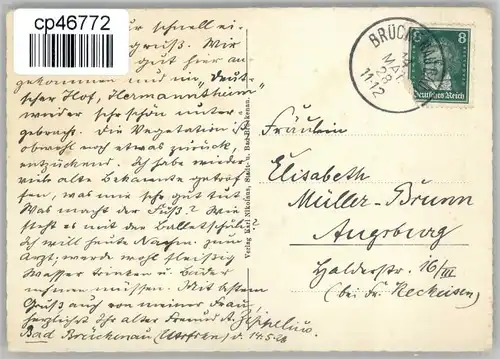 cp46772
ur schnell ei-
gruß. Wir
gut hier an-
gekommen und im „Deut-
scher Hof, Hermannsheim"
wieder sehr schön unter-
gebracht. Die Vegetation ist
obwohl noch etwas zurück,
entzückend. Ich habe wieder
viele alte Bekannte getrof-
fen, was mir sehr gut tut.
Was macht der Fuß? Wie
steht es mit der Ballettschule?
Ich will heute Nachm. zum
Arzt, werde wohl fleissig
Wasser trinken u. Bäder
nehmen müssen. Mit bestem
Gruß auch von meiner Frau
herzlichst Ihr alter Freund
Bad Brückenau (Ufrfrkn) d. 14.5.28
Verlag Karl Nikolaus, Stadt- u. Bad-Brückenau.
BRÜCKENAU
MAI
28
11-12
8
Deutsches Reich
Fräulein
Elisabeth
Müller-Brunn
Augsburg
Halderstr. 16/III
(bei Fr. Neckeisen)